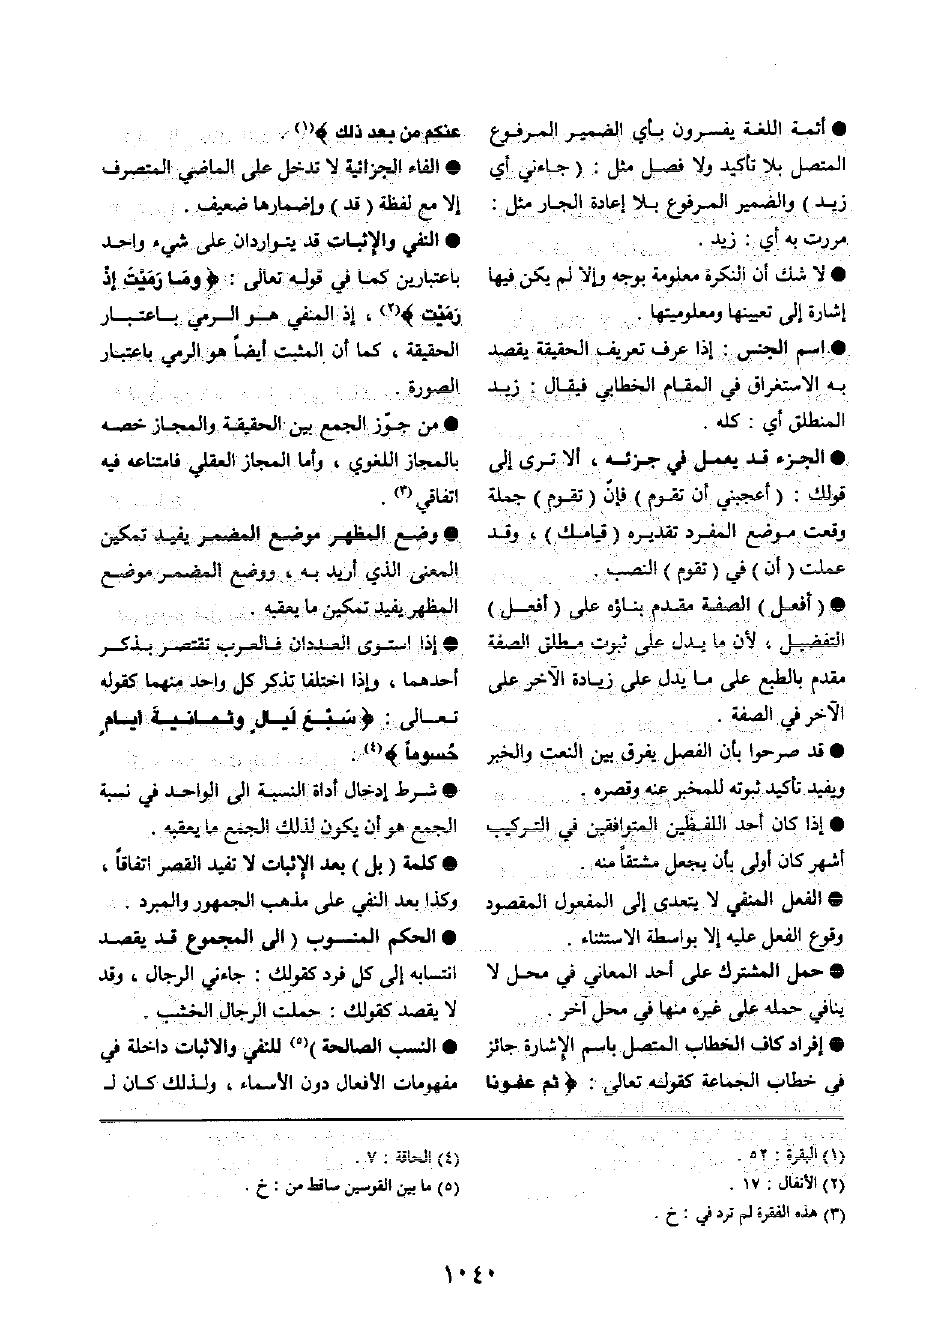 ● أئمة اللغة يفسرون بأي الضمير المرفوع
المتصل بلا تأكيد ولا فصل مثل : ( جاءني أي
زيد ) والضمير المرفوع بلا إعادة الجار مثل :
مررت به أي : زيد .
● لا شك أن النكرة معلومة بوجه وإلا لم يكن فيها
إشارة إلى تعيينها ومعلوميتها .
● اسم الجنس : إذا عرف تعريف الحقيقة يقصد
به الاستغراق في المقام الخطابي فيقال : زيد
المنطلق أي : كله .
● الجزء قد يعمل في جزئه ، ألا ترى إلى
قولك : ( أعجبني أن تقوم ) فإنّ ( تقوم ) جملة
وقعت موضع المفرد تقديره ( قيامك ) ، وقد
عملت ( أن ) في ( تقوم ) النصب .
● ( أفعل ) الصفة مقدم بناؤه على ( أفعل )
التفضيل ، لأن ما يدل على ثبوت مطلق الصفة
مقدم بالطبع على ما يدل على زيادة الآخر على
الآخر في الصفة .
● قد صرحوا بأن الفصل يفرق بين النعت والخبر
ويفيد تأكيد ثبوته للمخبر عنه وقصره .
● إذا كان أحد اللفظين المتوافقين في التركيب
أشهر كان أولى بأن يجعل مشتقاً منه .
● الفعل المنفي لا يتعدى إلى المفعول المقصود
وقوع الفعل عليه إلا بواسطة الاستثناء .
● حمل المشترك على أحد المعاني في محل لا
ينافي حمله على غيره منها في محل آخر .
● إفراد كاف الخطاب المتصل باسم الإشارة جائز
في خطاب الجماعة كقوله تعالى : ﴿ ثم عفونا
عنكم من بعد ذلك ﴾(١) .
● الفاء الجزائية لا تدخل على الماضي المتصرف
إلا مع لفظة ( قد ) وإضمارها ضعيف .
● النفي والإثبات قد يتواردان على شيء واحد
باعتبارين كما في قوله تعالى : ﴿ وما رَمَيْتَ إذ
رَمَيْت ﴾(٢) ، إذ المنفي هو الرمي باعتبار
الحقيقة ، كما أن المثبت أيضاً هو الرمي باعتبار
الصورة .
● من جوّز الجمع بين الحقيقة والمجاز خصه
بالمجاز اللغوي ، وأما المجاز العقلي فامتناعه فيه
اتفاقي(٣) .
● وضع المظهر موضع المضمر يفيد تمكين
المعنى الذي أريد به ، ووضع المضمر موضع
المظهر يفيد تمكين ما يعقبه .
● إذا استوى العددان فالعرب تقتصر بذكر
أحدهما ، وإذا اختلفا تذكر كل واحد منهما كقوله
تعالى : ﴿ سَبْعَ لَيالٍ وثمانيةَ أيامٍ
حُسوماً ﴾(٤) .
● شرط إدخال أداة النسبة الى الواحد في نسبة
الجمع هو أن يكون لذلك الجمع ما يعقبه .
● كلمة ( بل ) بعد الإثبات لا تفيد القصر اتفاقاً ،
وكذا بعد النفي على مذهب الجمهور والمبرد .
● الحكم المنسوب ( الى المجموع قد يقصد
انتسابه إلى كل فرد كقولك : جاءني الرجال ، وقد
لا يقصد كقولك : حملت الرجال الخشب .
● النسب الصالحة )(٥) للنفي والاثبات داخلة في
مفهومات الأفعال دون الأسماء ، ولذلك كان لـ
(١) البقرة : ٥٢ .
(٢) الأنفال : ١٧ .
(٣) هذه الفقرة لم ترد في : خ .
(٤) الحاقة : ٧ .
(٥) ما بين القوسين ساقط من : خ .
١٠٤٠